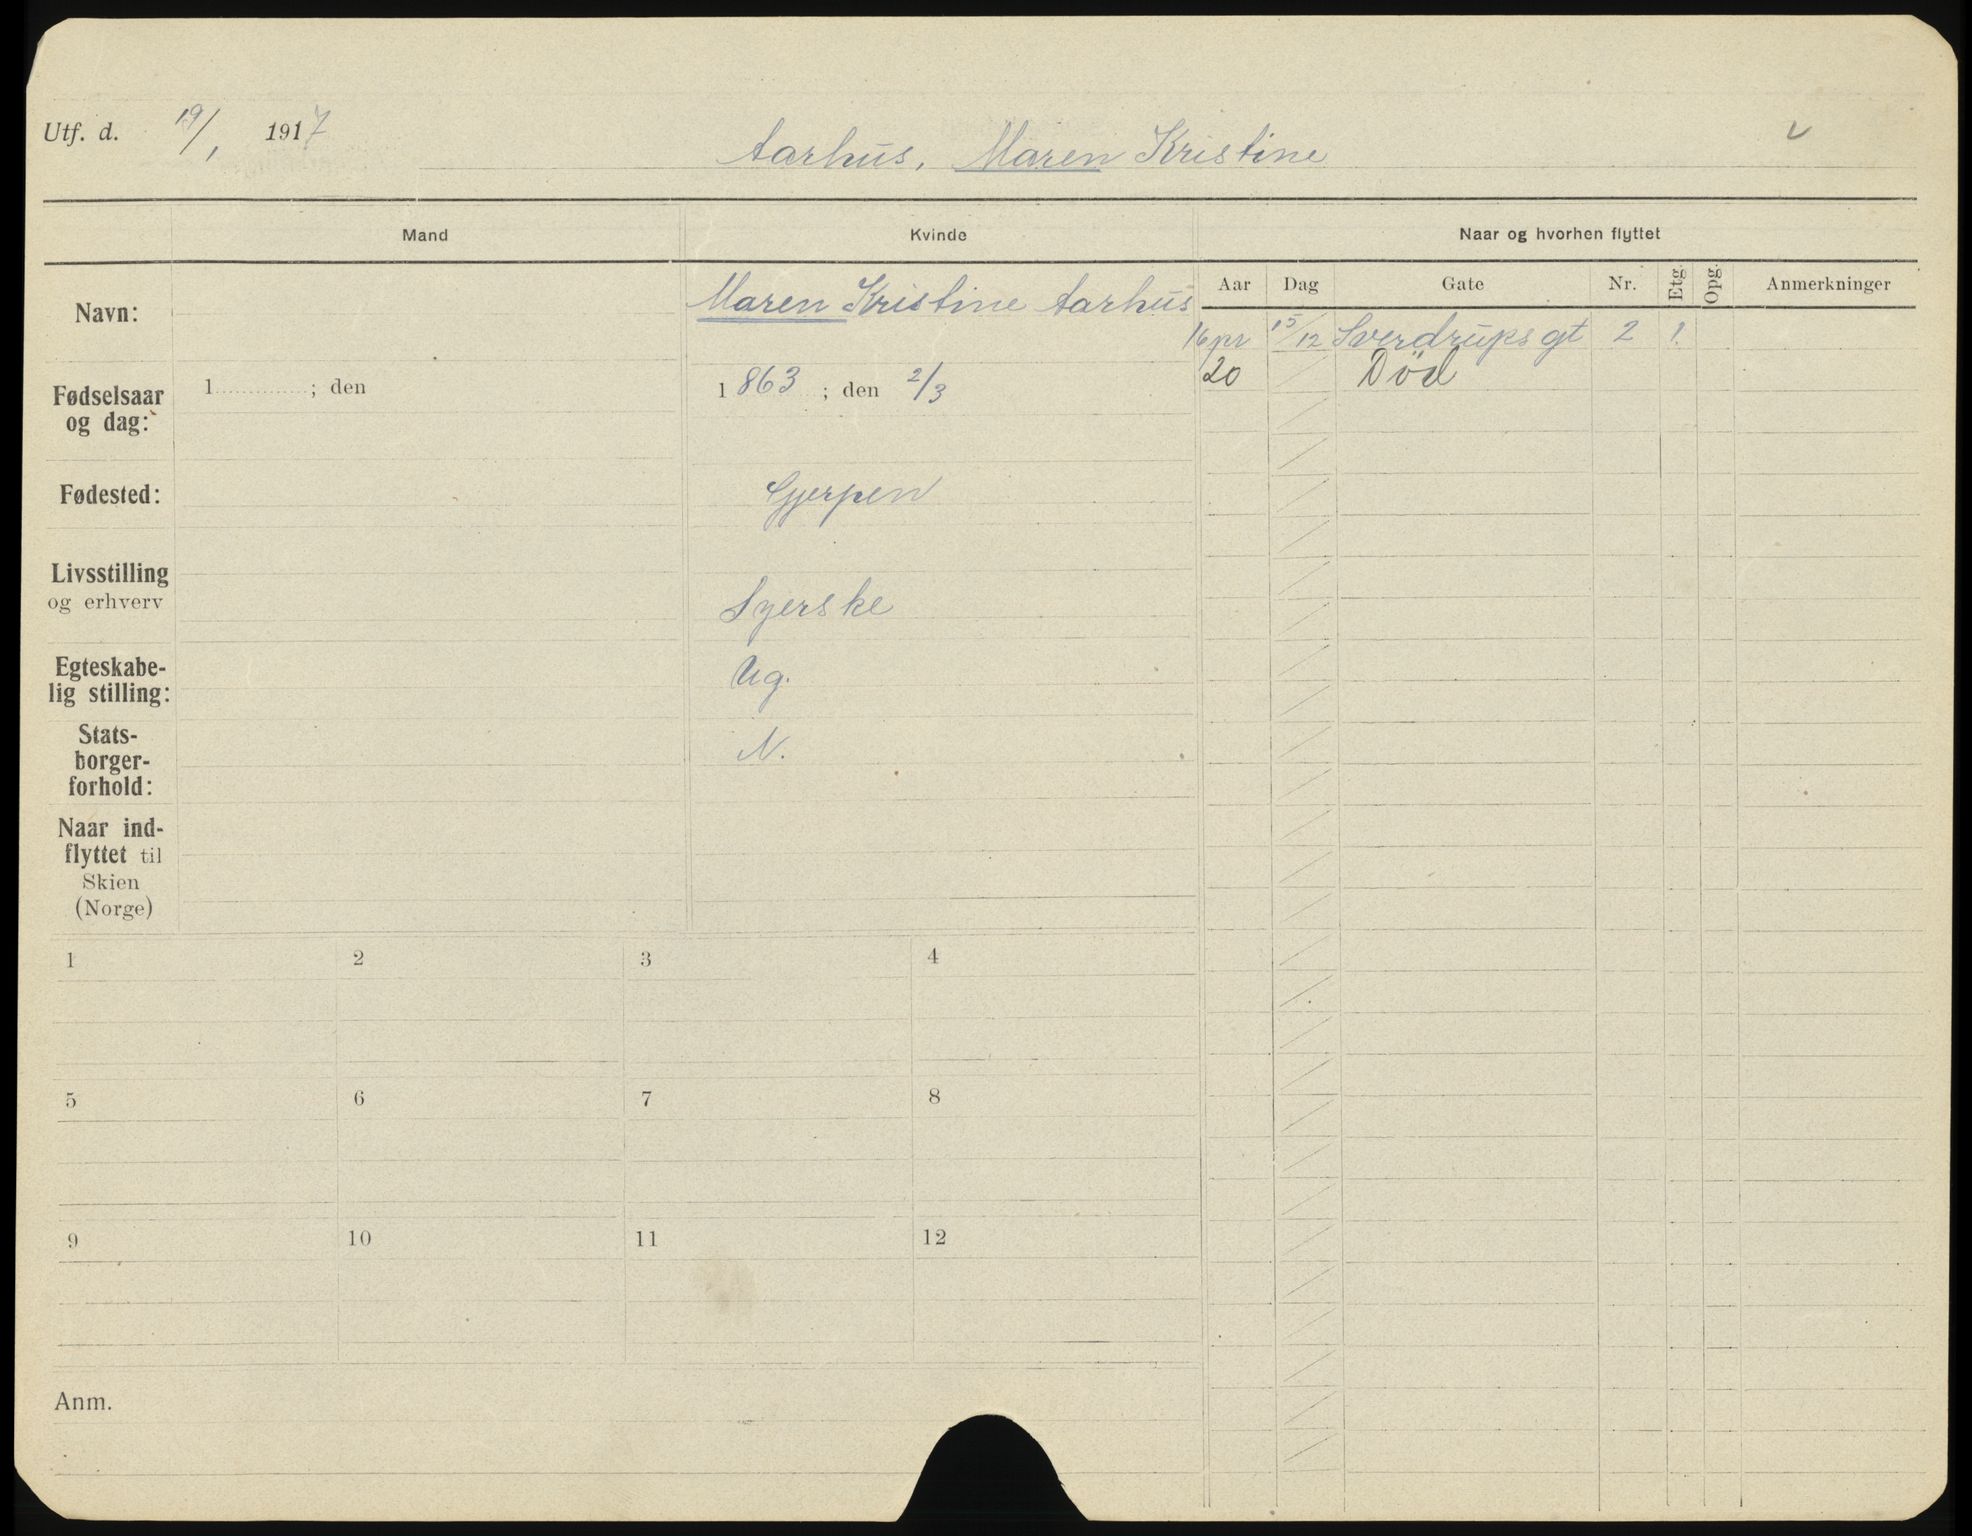 Utf. d. 19/1 1917
Aarhus, Maren Kristine
Mand Kvinde Naar og hvorhen flyttet
Aar Dag Gate Nr. Etg. Opg. Anmerkninger
Navn: Maren Kristine Aarhus
16 pr 15/12 Sverdrups gt 2 1.
20 Död
Fødselsaar
og dag:
1 ; den
1863 ; den 2/3
Fødested: Gjerpen
Livsstilling
og erhverv
Syerske
Egteskabe-
lig stilling:
Ug.
Stats-
borger-
forhold:
N.
Naar ind-
flyttet til
Skien
(Norge)
1 2 3 4
5 6 7 8
9 10 11 12
Anm.